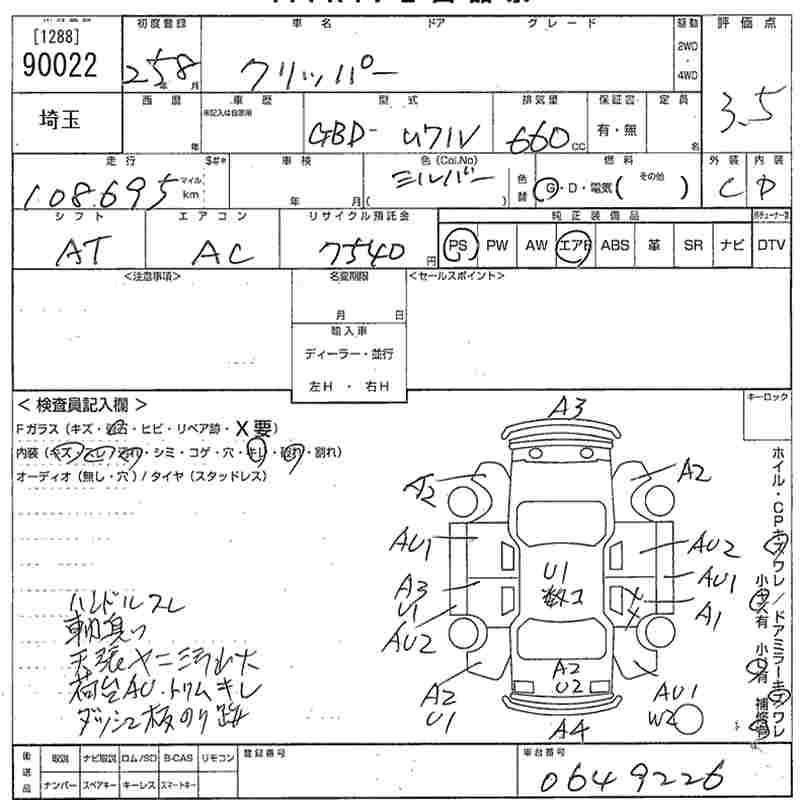 [1288]
90022
埼玉
初度登録
25年8月
車名
ドア
グレード
クリッパー
駆動
2WD
・
4WD
評価点
3.5
西暦
年
車歴
未記入は自家用
型式
GBD-U71V
排気量
660cc
保証書
有・無
定員
名
走行
108,695
マイル
km
車検
年 月
色(Col.No)
シルバー
( )
色替
燃料
G・D・電気( その他 )
外装
C
内装
D
シフト
AT
エアコン
AC
リサイクル預託金
7540円
純正装備品
PS PW AW エアB ABS 革 SR ナビ
DTV
<注意事項>
名変期限
月 日
輸入車
ディーラー・並行
左H ・ 右H
<セールスポイント>
<検査員記入欄>
キーロック
Fガラス(キズ・飛石・ヒビ・リペア跡・X要)
内装(キズ・スレ・汚れ・シミ・コゲ・穴・キレ・破れ・割れ)
オーディオ(無し・穴)/タイヤ(スタッドレス)
A3
A2
A2
AU1
AU2
A3
U1
U1
数コ
AU1
A1
AU2
A2
U1
A2
U2
AU1
W2
A4
ホイル・CPキズワレ/ドアミラーキズワレ
小キズ有
小凹有
補修跡
ハンドルスレ
天張ヤニ
荷台AU・トリムキレ
ダッシュ板のり跡
後送品
取説 ナビ取説 ロム/SD B-CAS リモコン
ナンバー スペアキー キーレス スマートキー
登録番号
車台番号
0649226